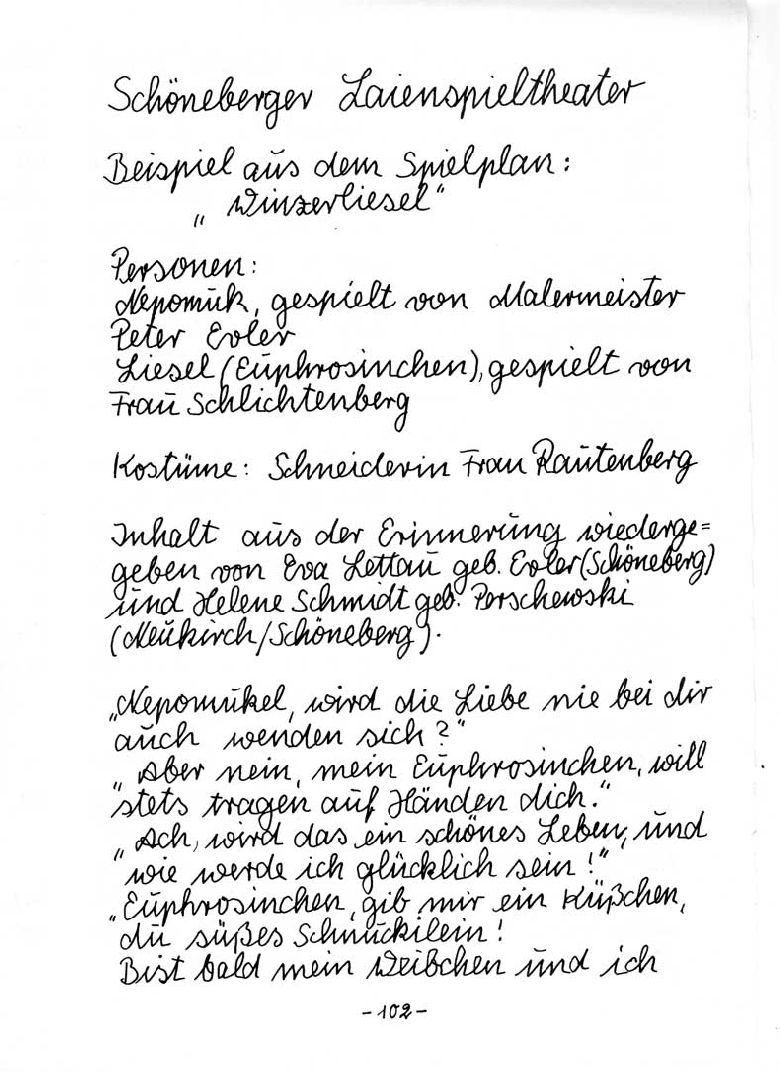 Schöneberger Laienspieltheater
Beispiel aus dem Spielplan:
„Winzerliesel“
Personen:
Nepomuk, gespielt von Malermeister
Peter Evler
Liesel (Euphrosinchen), gespielt von
Frau Schlichtenberg
Kostüme: Schneiderin Frau Rautenberg
Inhalt aus der Erinnerung wiederge=
geben von Eva Lettau geb. Evler (Schöneberg)
und Helene Schmidt geb. Perschewski
(Neukirch/Schöneberg).
„Nepomukel, wird die Liebe nie bei dir
auch wenden sich?“
„Aber nein, mein Euphrosinchen, will
stets tragen auf Händen dich.“
„Ach, wird das ein schönes Leben, und
wie werde ich glücklich sein!“
„Euphrosinchen, gib mir ein Küßchen,
du süßes Schnuckilein!
Bist bald mein Weibchen und ich
-102-